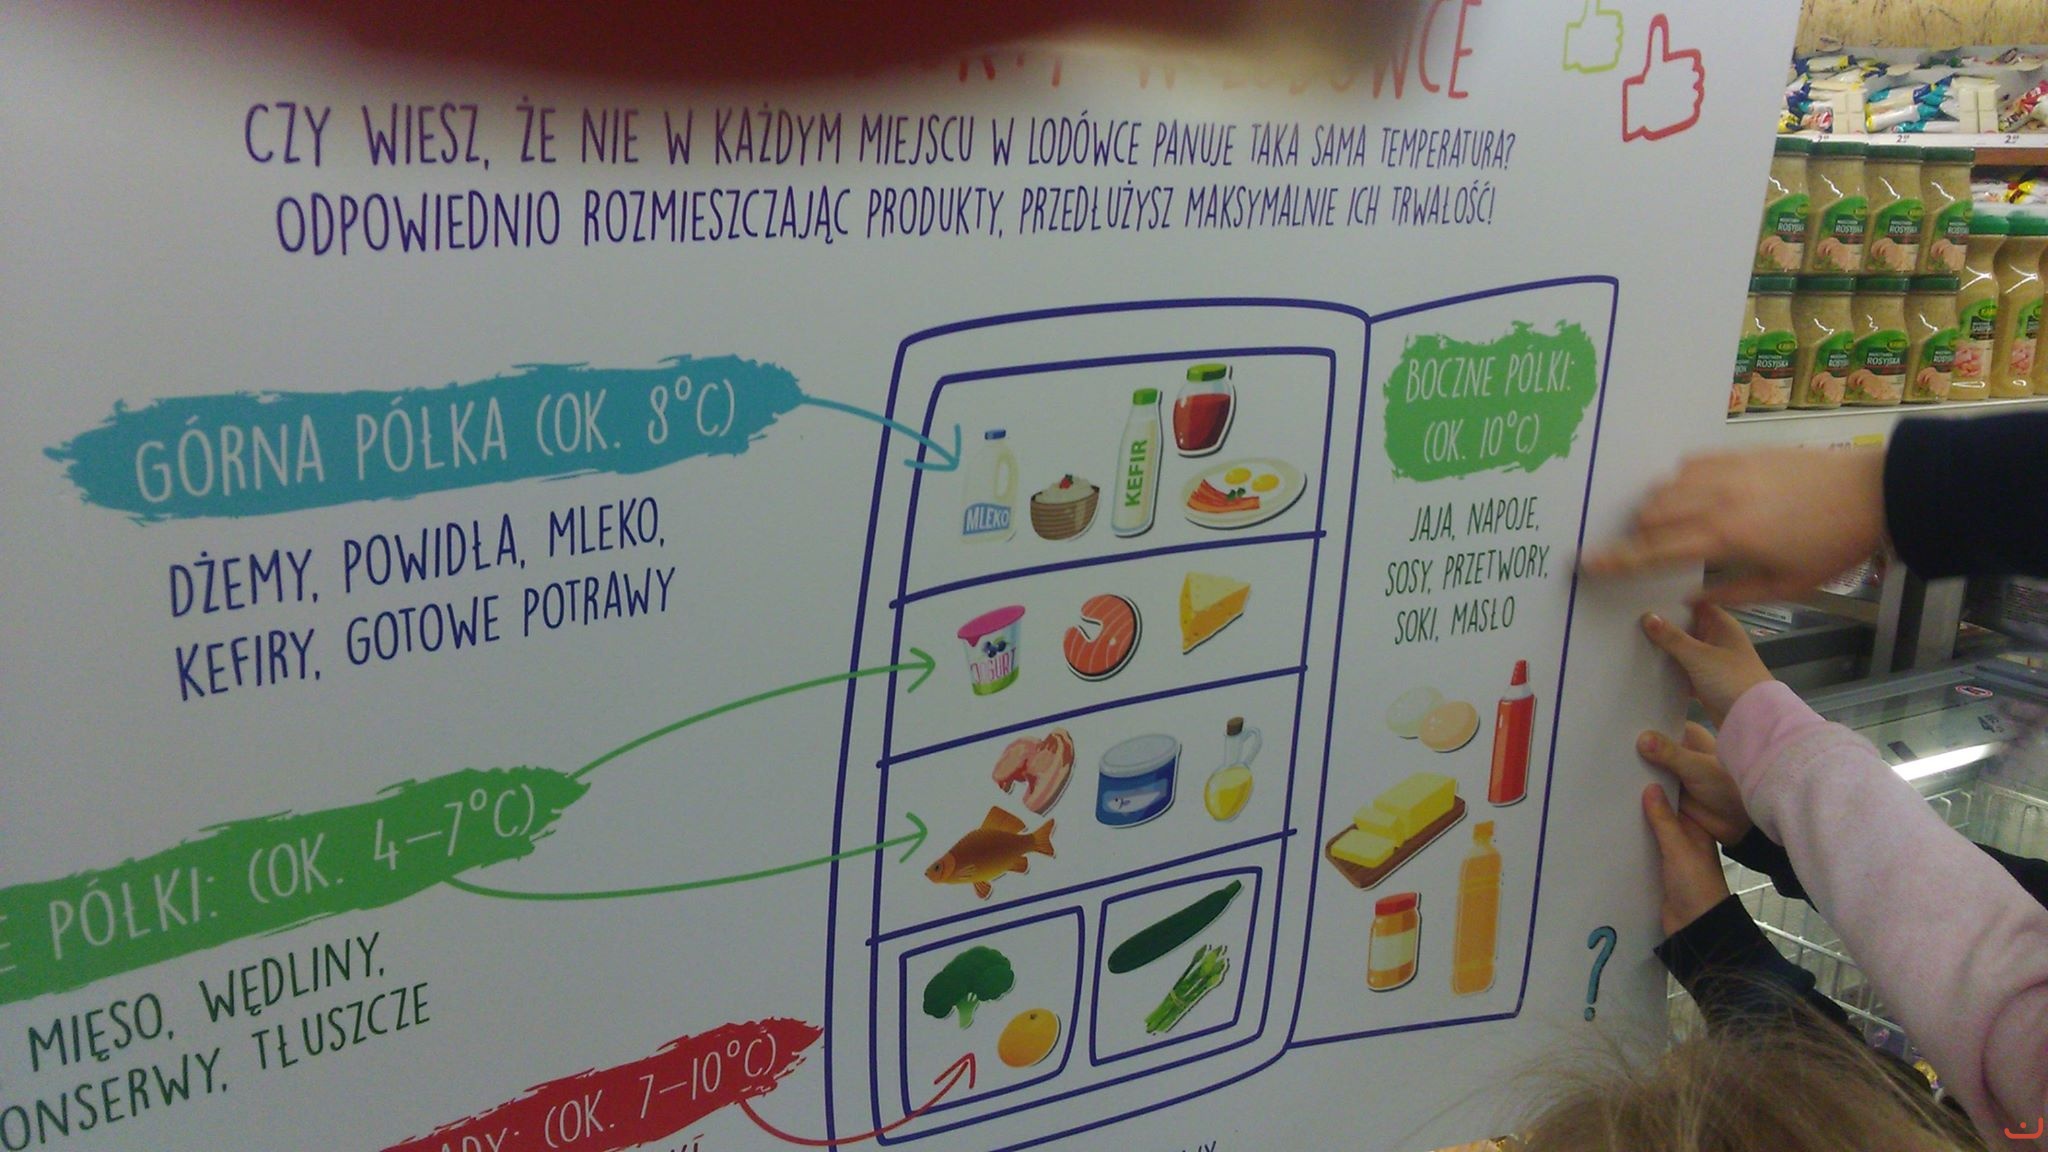 W LODÓWCE
CZY WIESZ, ŻE NIE W KAŻDYM MIEJSCU W LODÓWCE PANUJE TAKA SAMA TEMPERATURA?
ODPOWIEDNIO ROZMIESZCZAJĄC PRODUKTY, PRZEDŁUŻYSZ MAKSYMALNIE ICH TRWAŁOŚĆ!
GÓRNA PÓŁKA (OK. 8°C)
DŻEMY, POWIDŁA, MLEKO,
KEFIRY, GOTOWE POTRAWY
MLEKO
KEFIR
BOCZNE PÓŁKI:
(OK. 10°C)
JAJA, NAPOJE,
SOSY, PRZETWORY,
SOKI, MASŁO
JOGURT
E PÓŁKI: (OK. 4–7°C)
MIĘSO, WĘDLINY,
ONSERWY, TŁUSZCZE
ADY: (OK. 7–10°C)
?
ROSYJSKA
ROSYJSKA
ROSYJSKA
ROSYJSKA
ROSYJSKA
ROSYJSKA
ROSYJSKA